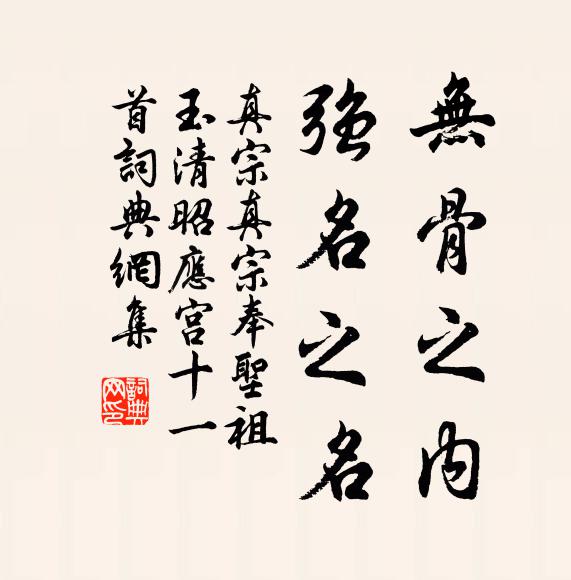 無骨之內
強名之名
真宗真宗奉聖祖
玉清昭應宮十一
首詞典網集
詞典网印